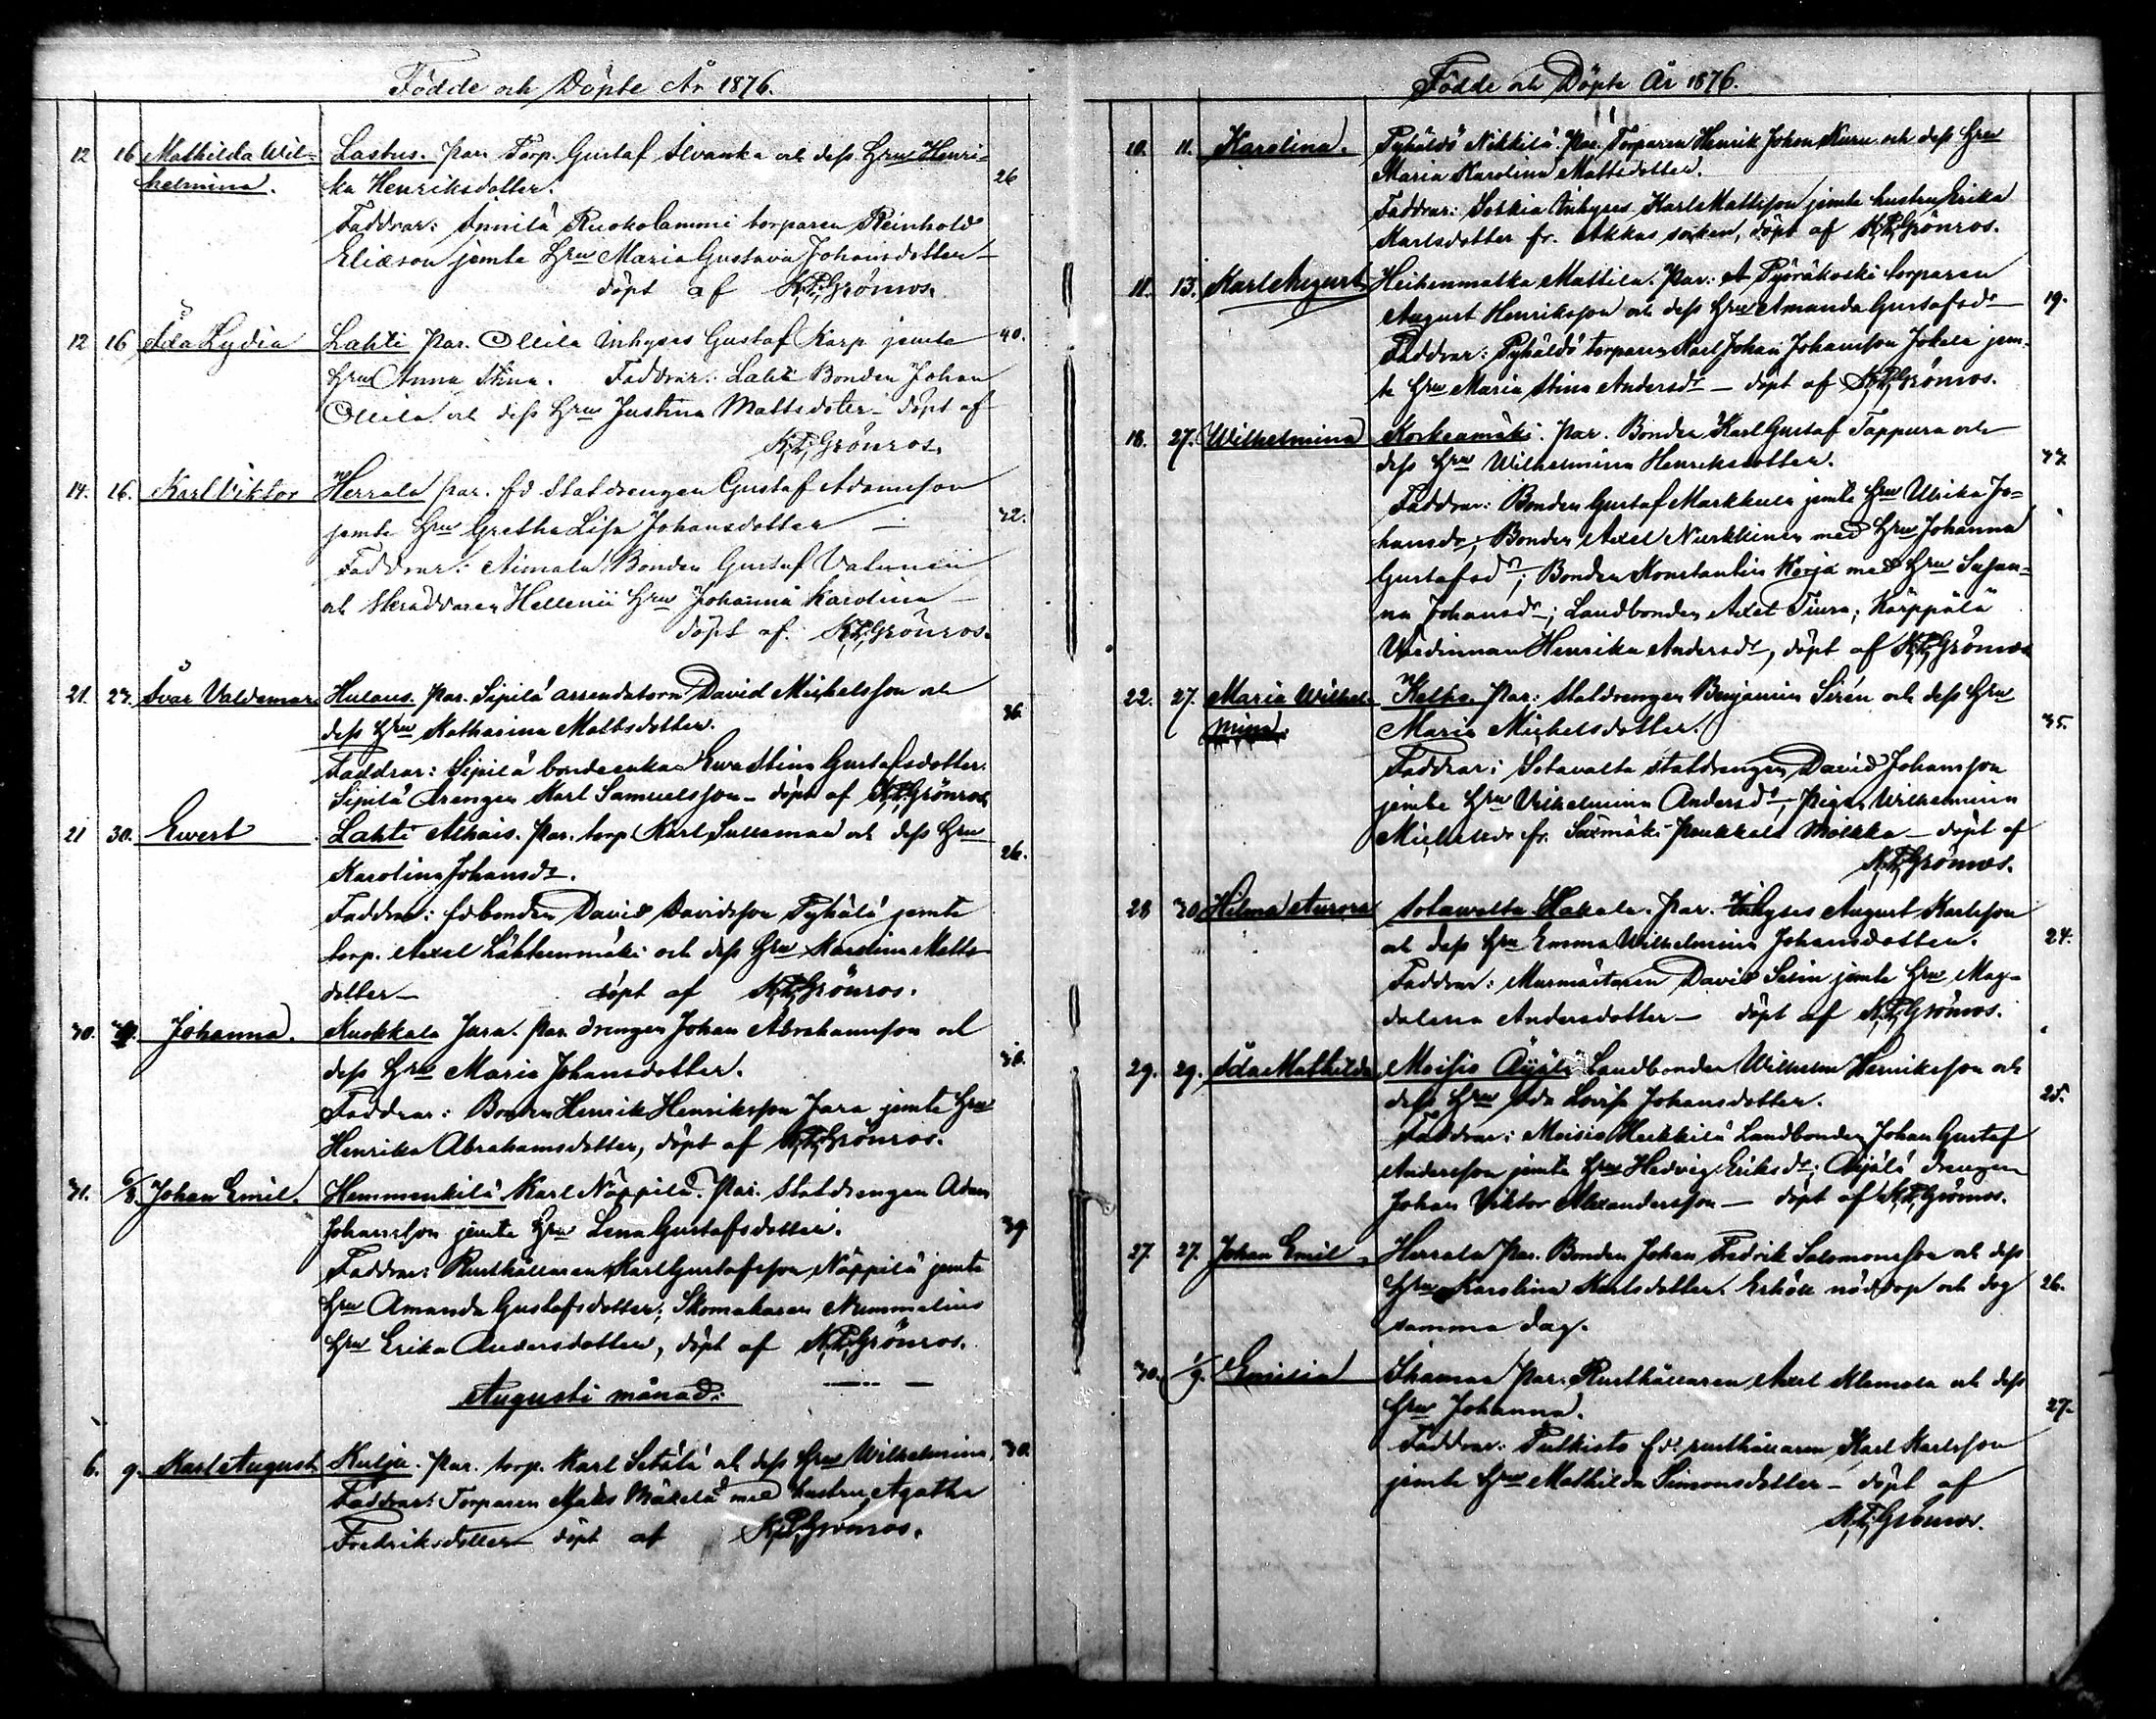 Födde och Döpte År 1876.
12 16 Mathilda Wil= Lastus. Par. Torp. Gustaf Ilvanka och dess Hru Henri=
helmina. ka Henriksdotter. 26
Faddrar: Annila Ruokolammi torparen Reinhold
Eliæson jemte Hru Maria Gustava Johansdotter –
döpt af K.F. Grönros.
12 16 Ida Lydia Lahti Par. Ollila Inhyses Gustaf Karp jemte 40.
Hru Anna Stina. Faddrar: Lahti Bonden Johan
Ollila och dess Hru Justina Mattsdoter – döpt af
K.F. Grönros.
14. 16. Karl Viktor Herrala par. fd Statdrengen Gustaf Adamsson
jemte Hru Gretha Lisa Johansdotter – 32.
Faddrar: Aimala Bonden Gustaf
och Skräddaren Hellenii Hru Johanna Karolina –
döpt af K.F. Grönros.
21. 23. Ivar Valdemar Hulaus. Par. Sipilä arrendatorn David Michelsson och
dess Hru Katharina Mattsdotter. 36.
Faddrar: Sipilä bondeenkan Eva Stina Gustafsdotter.
Sipilä drengen Karl Samuelsson – döpt af K.F. Grönros
21 30. Evert Lahti Alhais. Par. torp. Karl Sulkamaa och dess Hru
Karolina Johansdr. 26.
Faddrar: fd bonden David Davidsson Pyhälä jemte
torp. Axel Lähteenmäki och dess Hru Karolina Matts
dotter – döpt af K.F. Grönros.
30. Johanna. Kuokkala Jara. Par drengen Johan Abrahamsson och
dess Hru Maria Johansdotter.
Faddrar: Bonden Henrik Henriksson Jara jemte Hru
Henrika Abrahamsdotter, döpt af K.F. Grönros.
31. 6/8. Johan Emil. Hemmenkilä Karl Näppilä. Par. Statdrengen Adam
Johansson jemte Hru Lena Gustafsdotter. 39
Faddrar: Rusthållaren Karl Gustafsson Näppilä jemte
Hru Amanda Gustafsdotter; Skomakaren Nummelins
Hru Erika Andersdotter, döpt af K.F. Grönros.
Augusti månad:
6. 9. Karl August Kulju. Par. torp. Karl Setälä och dess Hru Wilhelmina, 30.
Faddrar: Torparen Maks Mäkelä med hustru Agatha
Fredriksdotter döpt af K.F. Grönros.
Födde och Döpte År 1876.
10. 11. Karolina. Pyhäldö Nikkilä. Par. Torparen Henrik Johan Kuru och dess Hru
Maria Karolina Mattsdotter.
Faddrar: Sotkia Inhyses Karl Mattsson jemte hustru Erika
Karlsdotter fr. Akkas soken, döpt af K.F. Grönros.
11. 13. Karl August Heikenmatka Mattila. Par: Pyöräkoski torparen
August Henriksson och dess Hru Amanda Gustafsdr 19.
Faddrar: Pyhäldö torparen Karl Johan Johansson Jokela jem=
te Hru Maria Stina Andersdr – döpt af K.F. Grönros.
18. 27. Wilhelmina Korkeamäki. Par. Bonden Karl Gustaf Tappura och
dess Hru Wilhelmina Henriksdotter. 33.
Faddrar: Bonden Gustaf Markkula jemte Hru Ulrika Jo=
hansdr, Bonden Axel Nurkkinen med Hru Johanna
Gustafsdr; Bonden Konstantin Kerja med Hru Susan=
na Johansdr; Landbonden Axel Tiura; Kärppälä
Värdinnan Henrika Andersdr, döpt af K.F. Grönros
22. 27. Maria Wilhel= Kelho. Par: Statdrengen Benjamin Sirén och dess Hru
mina. Maria Michelsdotter. 35.
Faddrar: Sotavalta statdrengen David Johansson
jemte Hru Vilhelmina Andersdr – Pigan Wilhelmina
Michelsdr fr. Sääxmäki Paukkala Moikka – döpt af
K.F. Grönros.
28 30. Hilma Aurora Sotavalta Hakala. Par. Inhyses August Karlsson
och dess Hru Emma Wilhelmina Johansdotter. 24.
Faddrar: Murmästaren David Selin jemte Hru Mag=
dalena Andersdotter – döpt af K.F. Grönros.
29. 29. Ida Mathilda Moisio Äijälä Landbonden Wilhelm Henriksson och
dess Hru Ida Lovisa Johansdotter. 25.
Faddrar: Moisio Heikkilä Landbonden Johan Gustaf
Andersson jemte Hru Hedvig Eriksdr; Äijälä drengen
Johan Viktor Alexandersson – döpt af K.F. Grönros.
27. 27. Johan Emil Herrala Par. Bonden Johan Fredrik Salomonsson och dess
Hru Karolina Karlsdotter. Erhöll nöddop och dog 26.
samma dag.
30. 1/9. Emilia Par. Rusthållaren Axel Klemola och dess
Hru Johanna. 27.
Faddrar: Pulkisto fd: rusthållaren Karl Karlsson
jemte Hru Mathilda Simonsdotter – döpt af
K.F. Grönros.